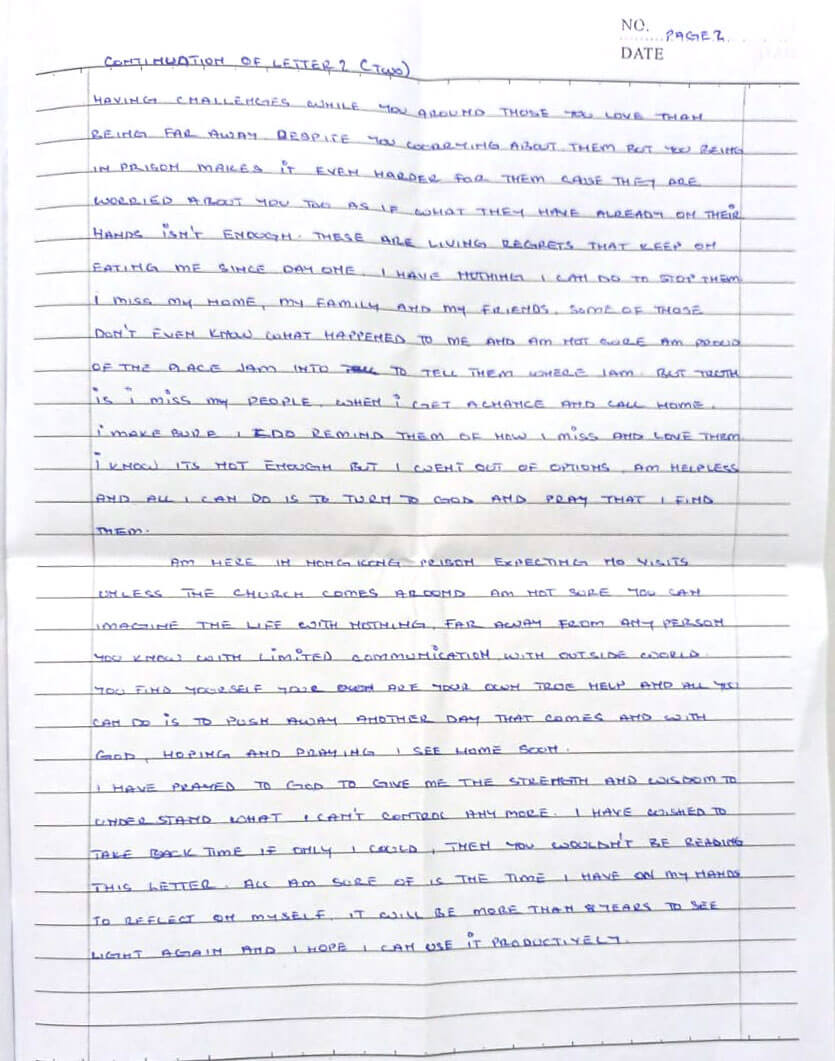 NO. PAGE 2
DATE
CONTINUATION OF LETTER 2 (TWO)
HAVING CHALLENGES WHILE YOU AROUND THOSE YOU LOVE THAN
BEING FAR AWAY DESPITE YOU WORRYING ABOUT THEM BUT YOU BEING
IN PRISON MAKES IT EVEN HARDER FOR THEM CAUSE THEY ARE
WORRIED ABOUT YOU TOO AS IF WHAT THEY HAVE ALREADY ON THEIR
HANDS ISN'T ENOUGH. THESE ARE LIVING REGRETS THAT KEEP ON
EATING ME SINCE DAY ONE. I HAVE NOTHING I CAN DO TO STOP THEM
I MISS MY HOME, MY FAMILY AND MY FRIENDS. SOME OF THOSE
DON'T EVEN KNOW WHAT HAPPENED TO ME AND AM NOT SURE AM PROUD
OF THE PLACE IAM INTO TO TELL THEM WHERE IAM. BUT TRUTH
IS I MISS MY PEOPLE. WHEN I GET A CHANCE AND CALL HOME,
I MAKE SURE I DO REMIND THEM OF HOW I MISS AND LOVE THEM
I KNOW ITS NOT ENOUGH BUT I WENT OUT OF OPTIONS. AM HELPLESS
AND ALL I CAN DO IS TO TURN TO GOD AND PRAY THAT I FIND
THEM.
AM HERE IN HONG KONG PRISON EXPECTING NO VISITS
UNLESS THE CHURCH COMES AROUND AM NOT SURE YOU CAN
IMAGINE THE LIFE WITH NOTHING, FAR AWAY FROM ANY PERSON
YOU KNOW WITH LIMITED COMMUNICATION WITH OUTSIDE WORLD.
YOU FIND YOURSELF YOUR OWN ARE YOUR OWN TRUE HELP AND ALL YOU
CAN DO IS TO PUSH AWAY ANOTHER DAY THAT COMES AND WITH
GOD, HOPING AND PRAYING I SEE HOME SOON.
I HAVE PRAYED TO GOD TO GIVE ME THE STRENGTH AND WISDOM TO
UNDER STAND WHAT I CAN'T CONTROL ANY MORE. I HAVE WISHED TO
TAKE BACK TIME IF ONLY I COULD, THEN YOU WOULDN'T BE READING
THIS LETTER. ALL AM SURE OF IS THE TIME I HAVE ON MY HANDS
TO REFLECT ON MYSELF. IT WILL BE MORE THAN 8 YEARS TO SEE
LIGHT AGAIN AND I HOPE I CAN USE IT PRODUCTIVELY.